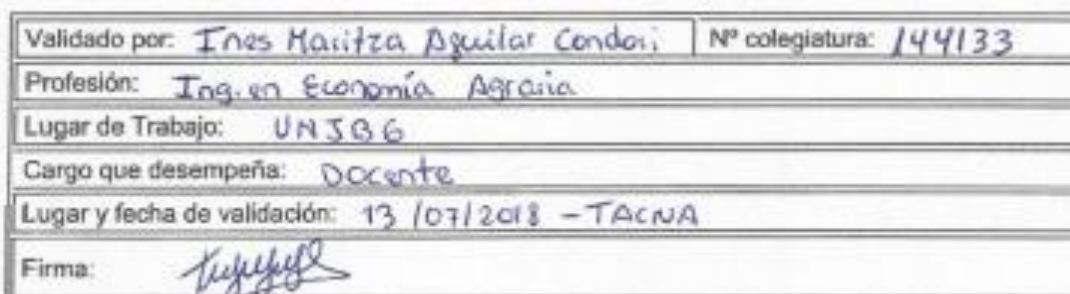 Validado por: Ines Maritza Aguilar Condori Nº colegiatura: 144133
Profesión: Ing. en Economía Agraria
Lugar de Trabajo: UNJBG
Cargo que desempeña: Docente
Lugar y fecha de validación: 13/07/2018 - TACNA
Firma: